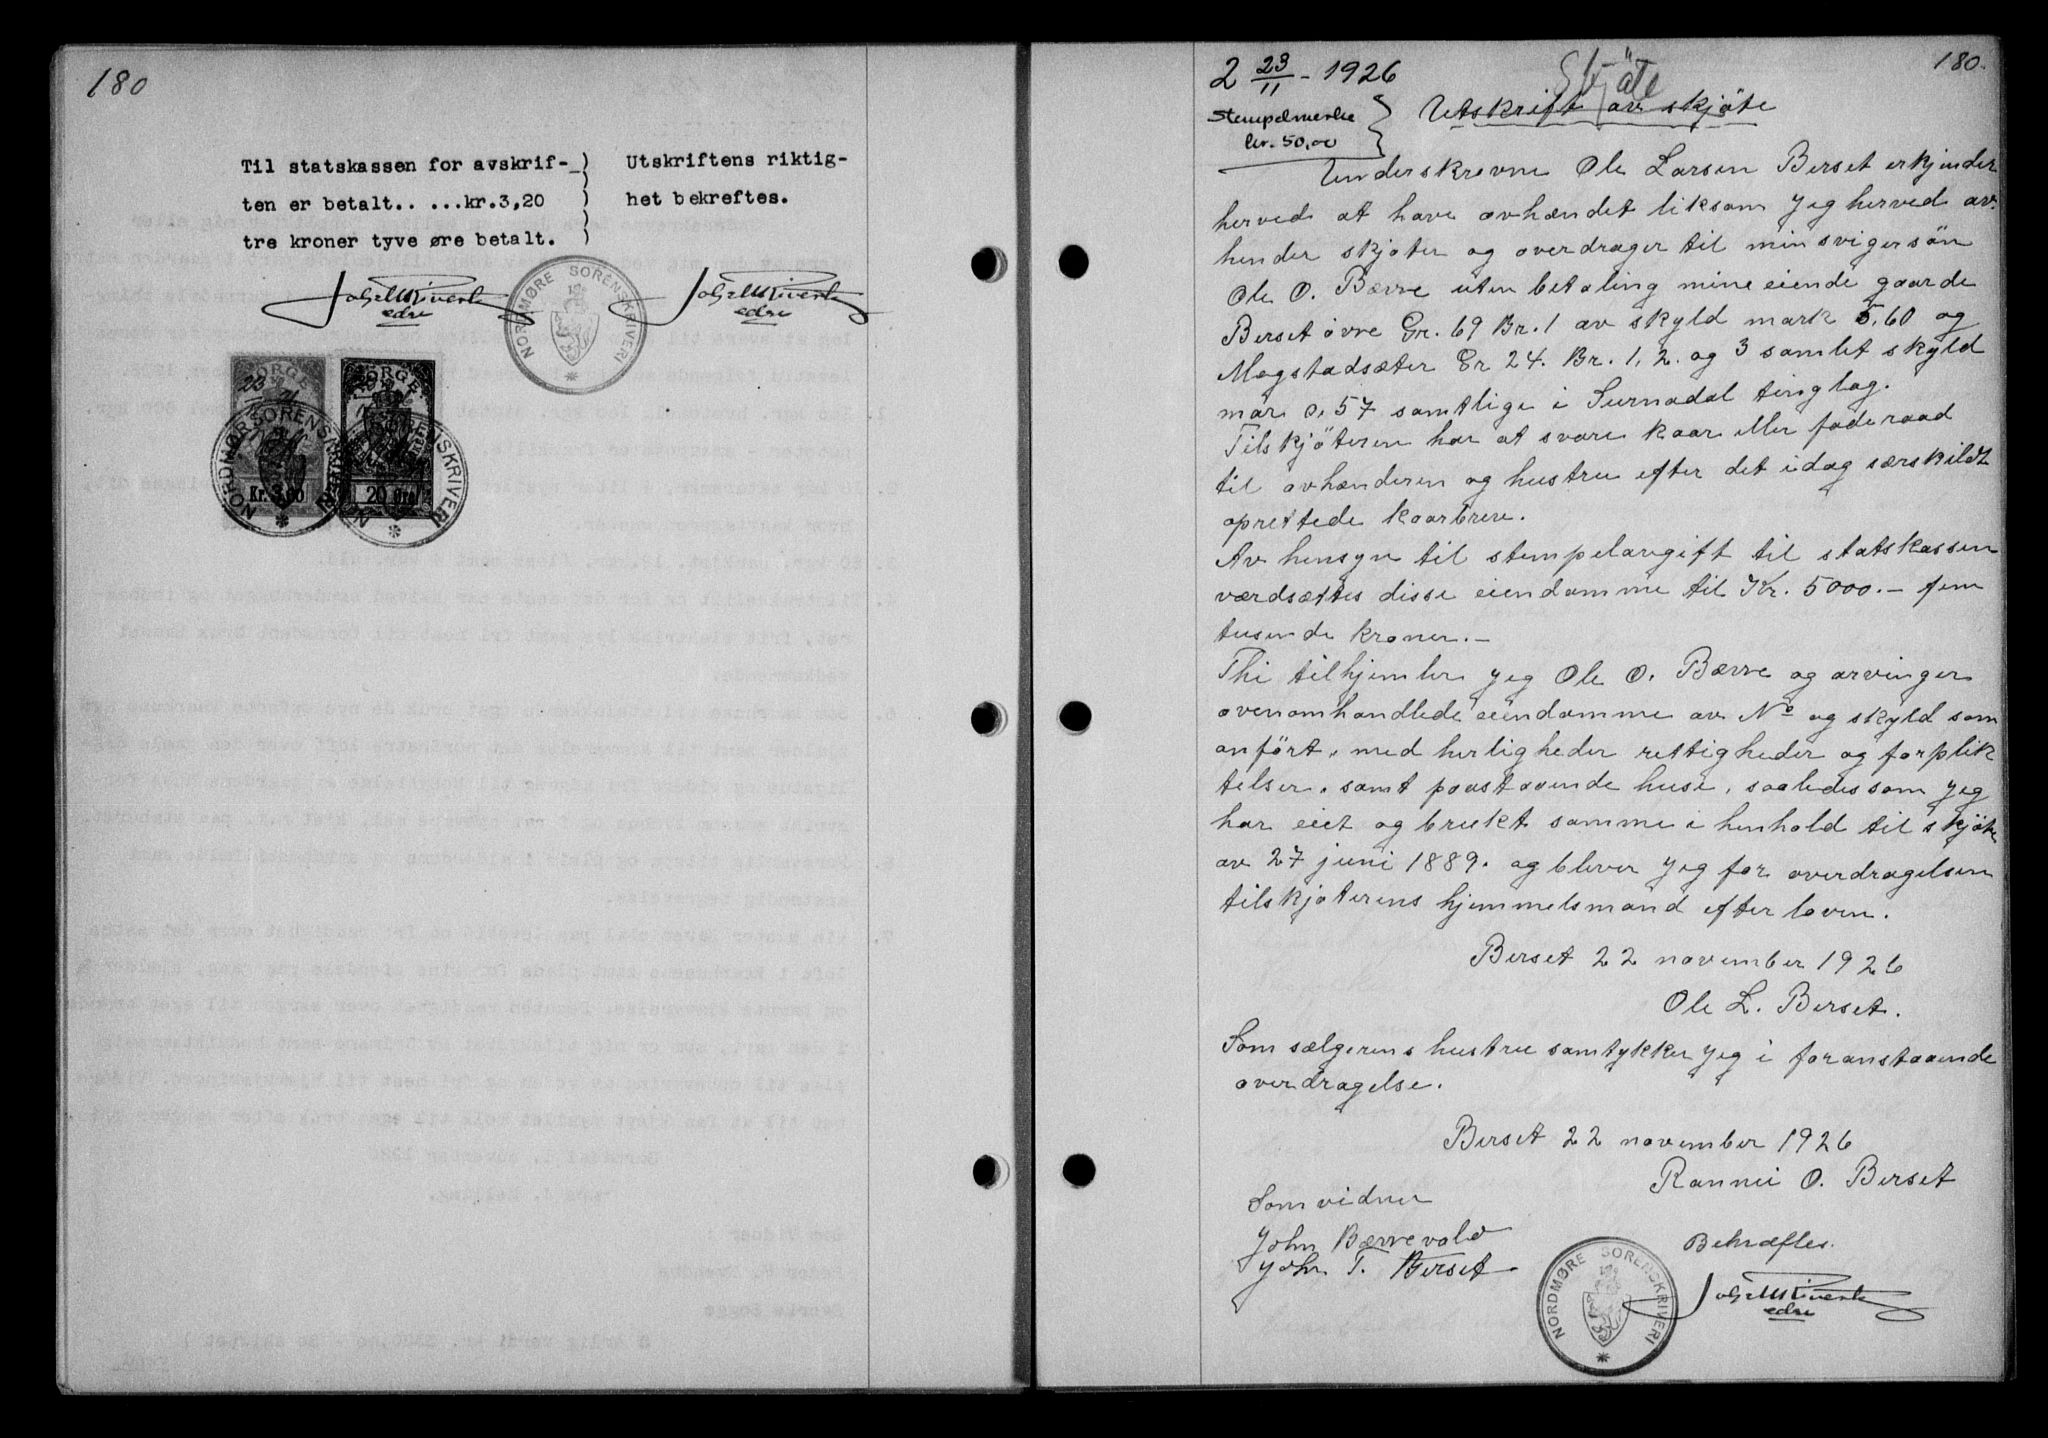 180
Til statskassen for avskrif-
ten er betalt.. ...kr.3,20
tre kroner tyve øre betalt.
Utskriftens riktig-
het bekreftes.
edre
edre
NORDMØRE SORENSKRIVERI
NORGE
23/11
Kr. 3,00
20 Øre
NORDMØRE SORENSKRIVERI
NORDMØRE SORENSKRIVERI
180.
2 23/11 - 1926
Skjöte
Stempelmerke
kr. 50,00
Utskrift av skjöte
Underskrevne Ole Larsen Berset erkjender
herved at have avhændet liksom jeg herved av-
hender skjøter og overdrager til min svigersön
Ole O. Bævre uten betaling mine eiende gaarde
Berset övre Gr. 69 Br. 1 av skyld mark 5,60 og
Mogstadsæter Gr 24. Br. 1, 2. og 3 samlet skyld
mar 0,57 samtlige i Surnadal tinglag.
Tilskjöteren har at svare kaar eller föderaad
til avhænderen og hustru efter det idag særskildt
oprettede kaarbrev.
Av hensyn til stempelavgift til statskassen
værdsættes disse eiendomme til Kr. 5000.- fem
tusende kroner.-
Thi tilhjemler jeg Ole O. Bævre og arvinger
ovenomhandlede eiendomme av No og skyld som
anfört, med herligheder rettigheder og forplik
telser, samt paastaaende huse, saaledes som jeg
har eiet og brukt samme i henhold til skjöte
av 27 juni 1889. og bliver jeg for overdragelsen
tilskjøterens hjemmelsmand efter loven.
Berset 22 november 1926
Ole L. Berset.
Som sælgerens hustru samtykker jeg i foranstaaende
overdragelse.
Berset 22 november 1926
Rannei O. Berset
Som vidner
John Bævrevold
John T. Berset
Bekræftes.
edre
NORDMØRE SORENSKRIVERI